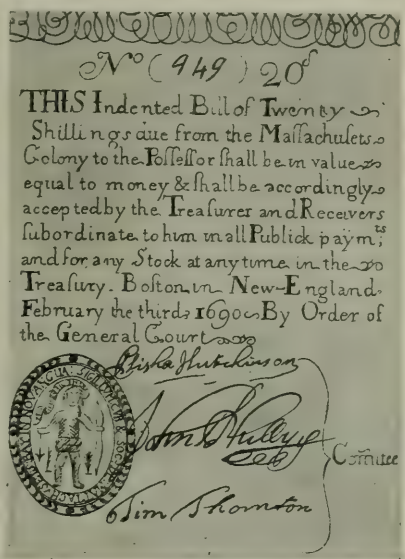 No (949) 20s
THIS Indented Bill of Twenty
Shillings due from the Maſſachuſets
Colony to the Poſſeſſor ſhall be in value
equal to money & ſhall be accordingly
accepted by the Treaſurer and Receivers
ſubordinate to him in all Publick paymts;
and for any Stock at any time in the
Treaſury. Boſton in New-England
February the third 1690 By Order of
the General Court
Elisha Hutchinson
Comitee
Tim Thornton